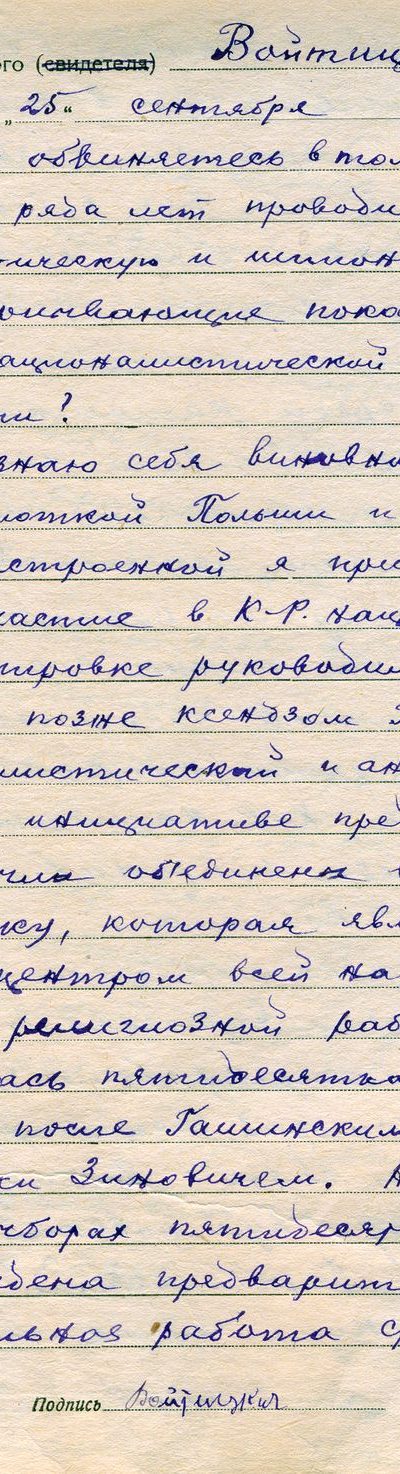 ого (свидетеля) Войтиц
„25“ сентября
обвиняетесь в том
ряда лет проводи
ическую и шпион
оичвающие пока
ационалистической
ти?
знаю себя виновно
лоткой Польши и
строенной я при
частие в К-Р. нац
тировке руководил
позже ксендзом
листической и ан
инициативе пре
чил объединен
ку, которая явл
центром всей на
религиозной раб
ась пятидесятка
после Гашинским
ки Зиновичем. А
чборах пятидесят
дена предварит
льная работа ср
Подпись Войтицкая